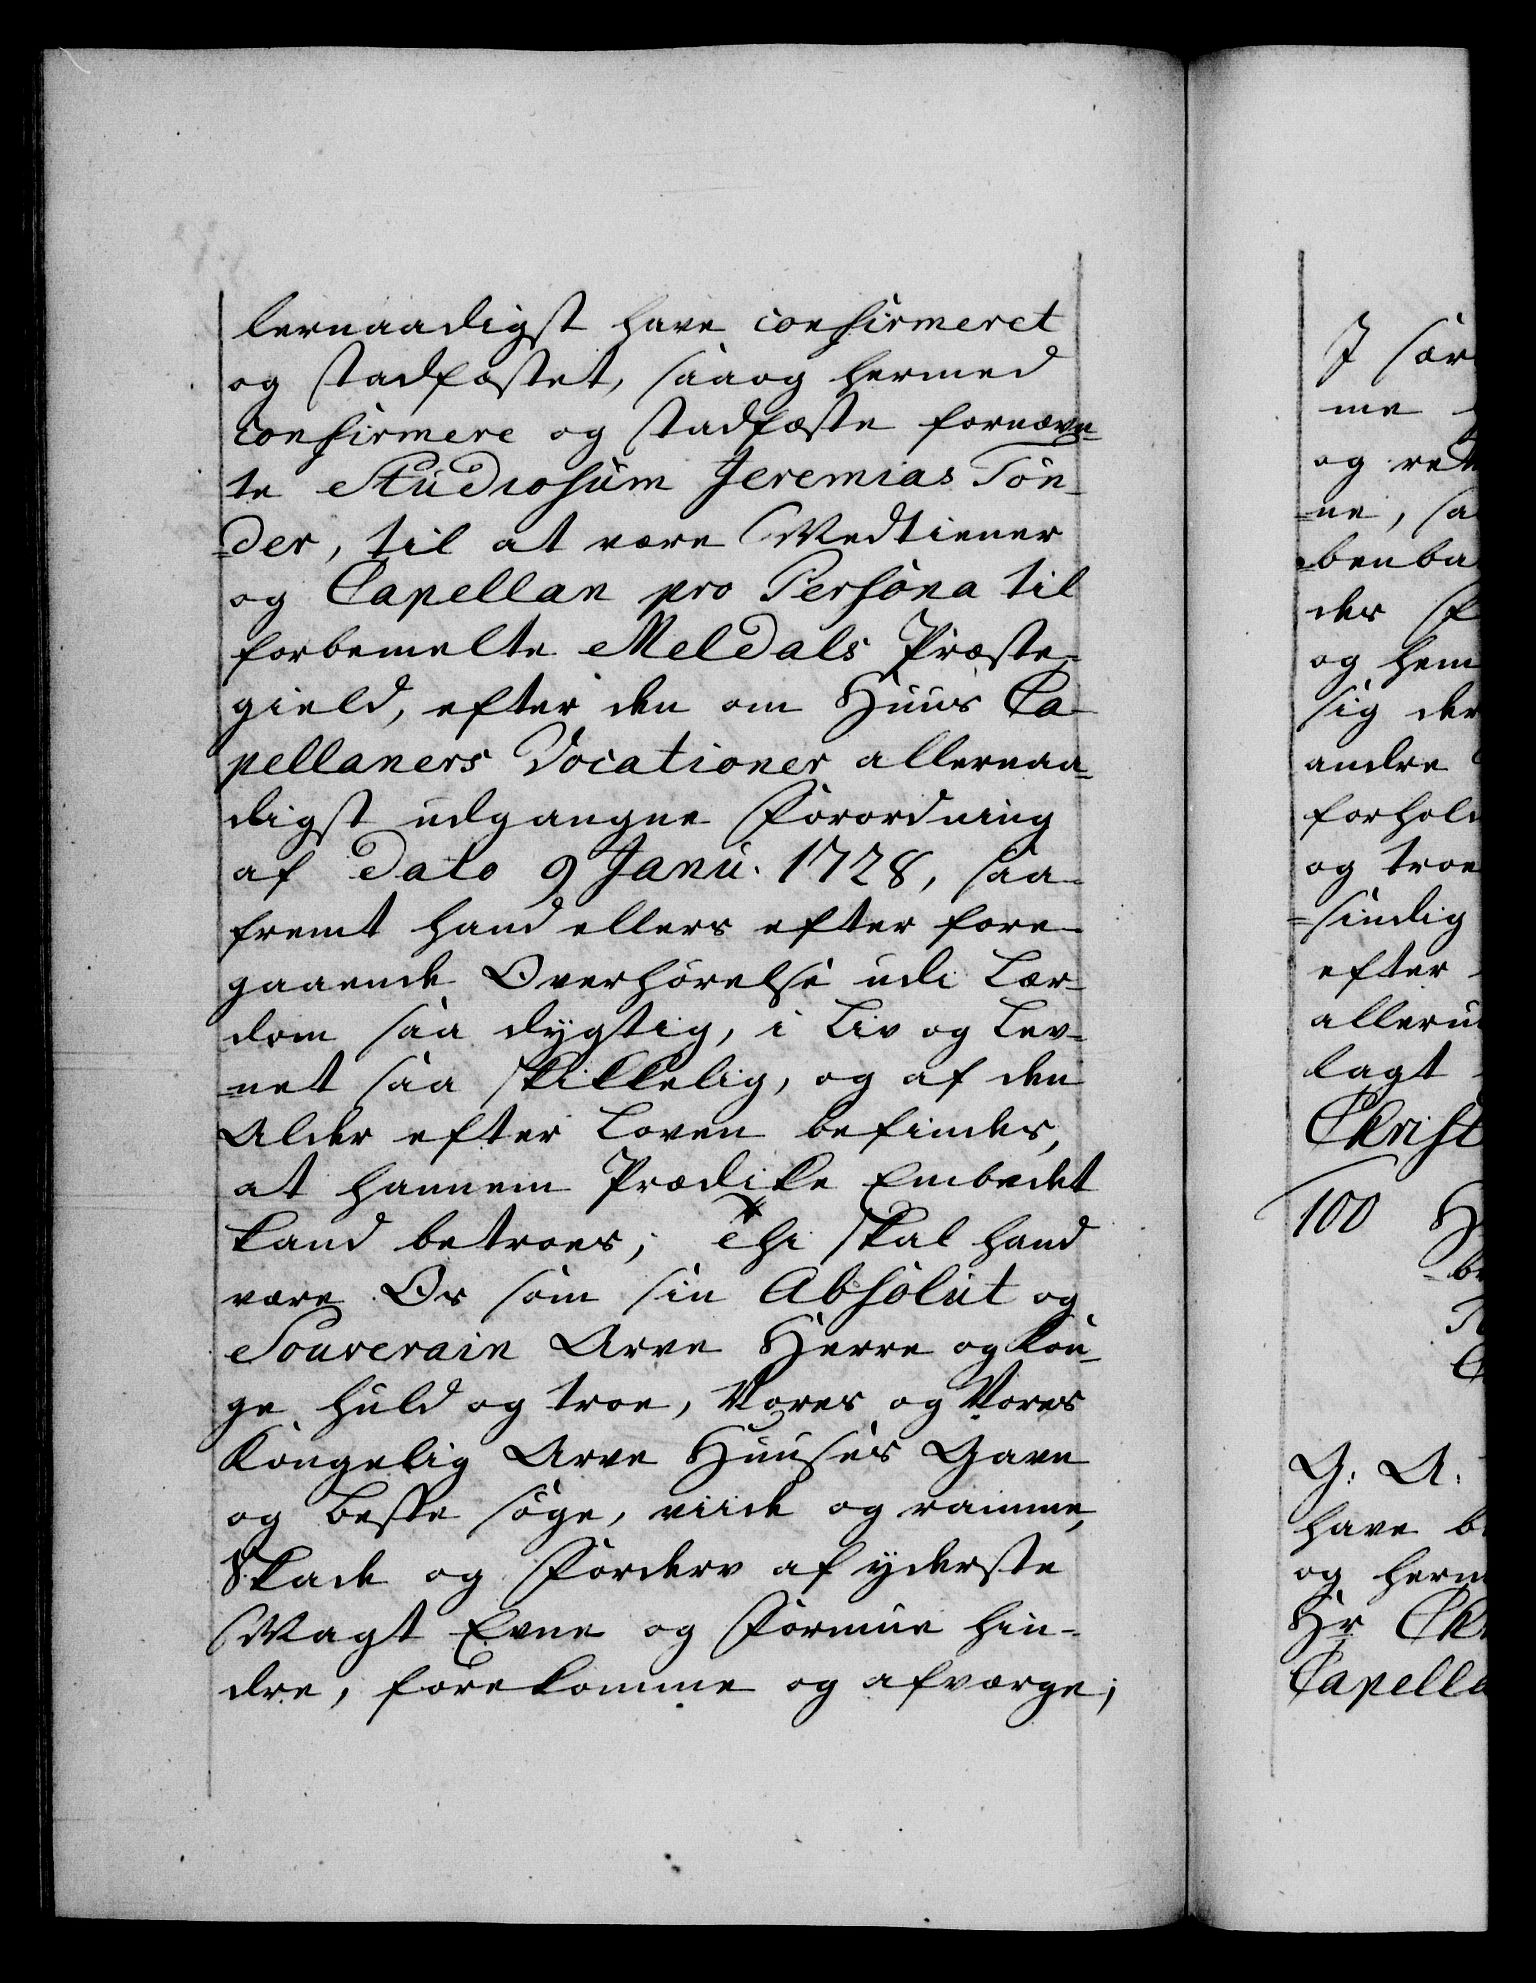 lernaadigst have confirmeret
og stadfæstet, saaog hermed
confirmere og stadfæste fornævn-
te Studiosum Jeremias Tön-
-der, til at være Medtiener
og Capellan pro Persona til
forbemelte Meldals Præste-
gield, efter den om Huus Ca-
pellaners Vocationer allernaa-
digst udgangne Forordning
af Dato 9 Janu. 1728, saa-
fremt hand ellers efter fore-
gaaende Overhörelse udi Lær-
dom saa dygtig, i Liv og Lev-
-net saa skikkelig, og af den
Alder efter Loven befindes,
at hannem Prædike Embedet
kand betroes; Thi skal hand
være Os som sin Absolut og
Souverain Arve Herre og Kon-
ge huld og troe, Vores og Vores
Kongelig Arve Huuses Gavn
og beste söge, viide og ramme,
Skade og Forderv af yderste
Magt Evne og Formue hin-
dre, forekomme og afværge;
J sær
me
og ret
-ne, sa
benba
des
og hem
sig der
andre
forhold
og troe
-sindig
efter
alleru
lagt
Christ
100 H
G. A.
have b
og herm
Hr Ch
Capella